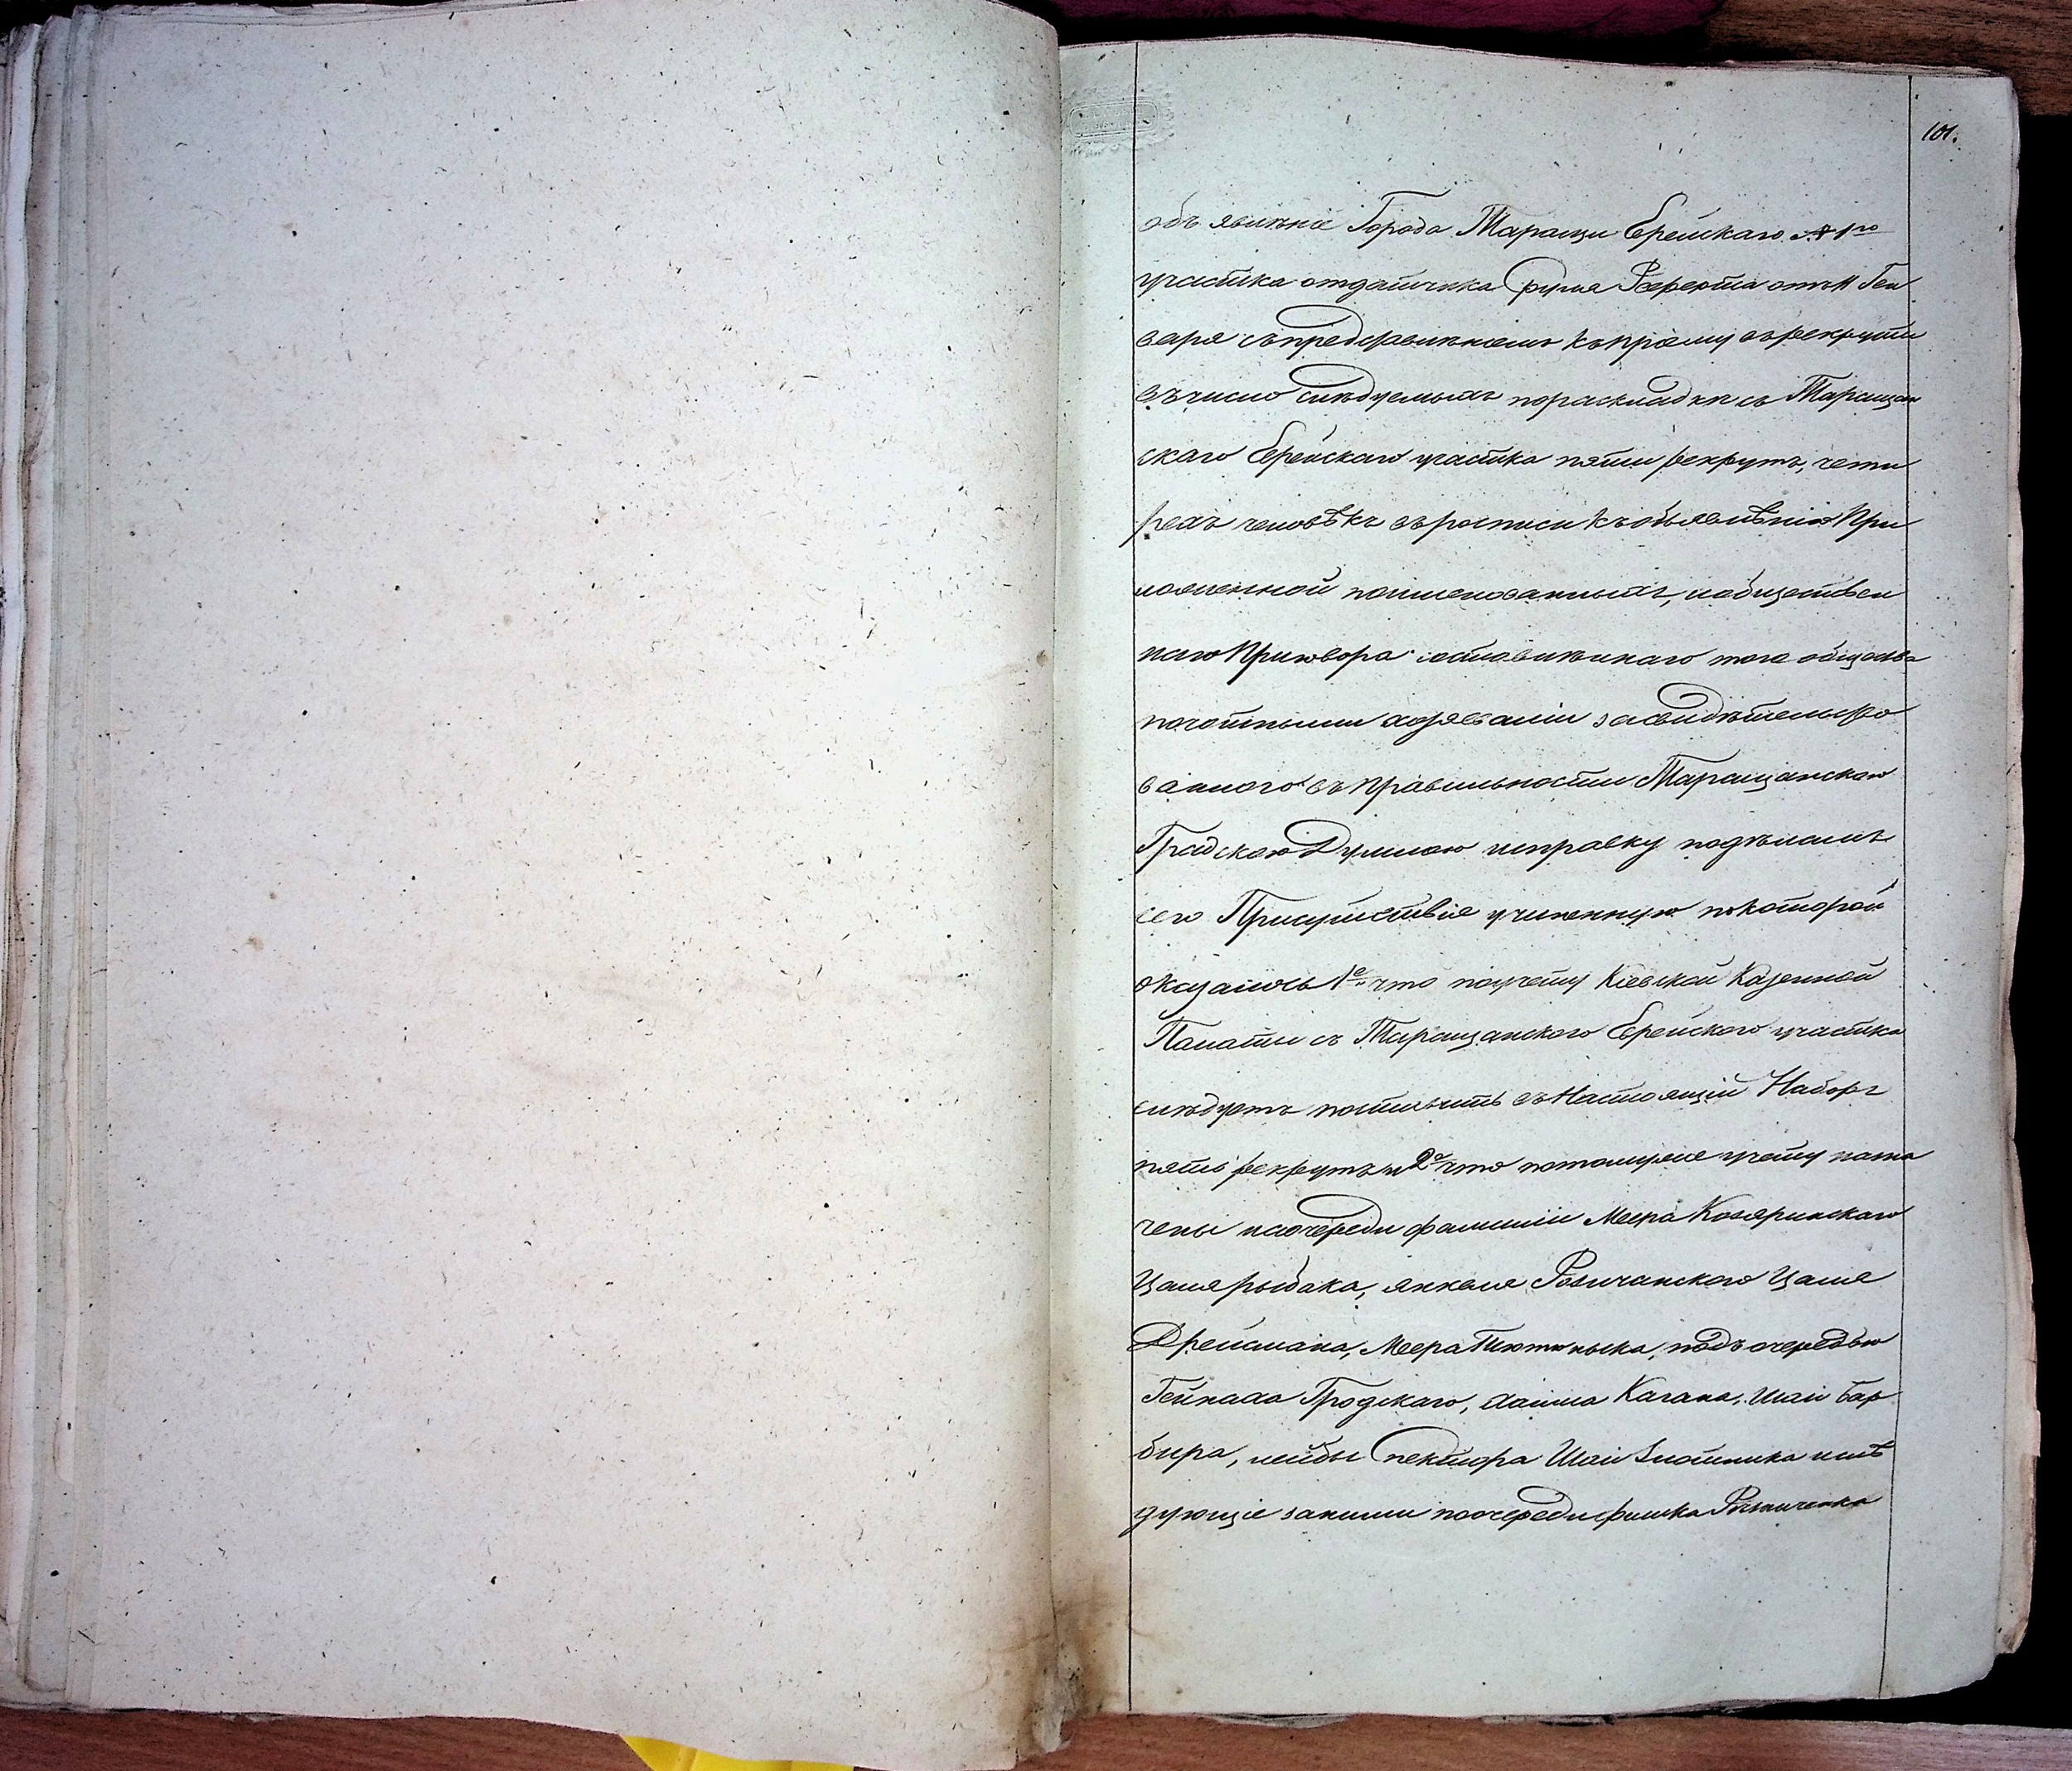 101.
объявленіе Города Таращи Еврейскаго 1го
участка отдатчика Сруля Реферта отъ 11 Ген
варя съ представленіемъ къ пріему въ рекруты
въ число слѣдуемыхъ по раскладкѣ съ Таращан
скаго Еврейскаго участка пяти рекрутъ, четы
рехъ человѣкъ въ росписи къ объявленію При
ложенной поименованныхъ, и обществен
наго Приговора составленнаго того общества
почотными хозяевами засвидѣтельство
ваннаго въ правильности Таращанскою
Градскою Думою и справку подѣламъ
сего Присутствія учиненную по которой
оказалось 1е что по учету Кіевской Казенной
Палаты съ Таращанскаго Еврейскаго участка
слѣдуетъ поступить въ Настоящій Наборъ
пять рекрутъ и 2е что по томуже учету назна
чены на очереди фамиліи Меера Козяринскаго
Цаля рыбака, янкеля Цаля
Дреймана, Меера подъ очередью
Гейнаха Гродскаго, Хаима Кагана, Шаи Бар
бира, лейбы Спектора Шаи Злотника и слѣ
дующіе за ними по очереди фишка